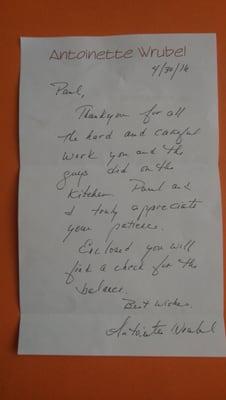 Antoinette Wrubel
4/30/16
Paul,
Thankyou for all
the hard and careful
work you and the
guys did on the
Kitchen. Paul and
I truly appreciate
your patience.
Enclosed you will
find a check for the
balance.
Best Wishes,
Antoinette Wrubel